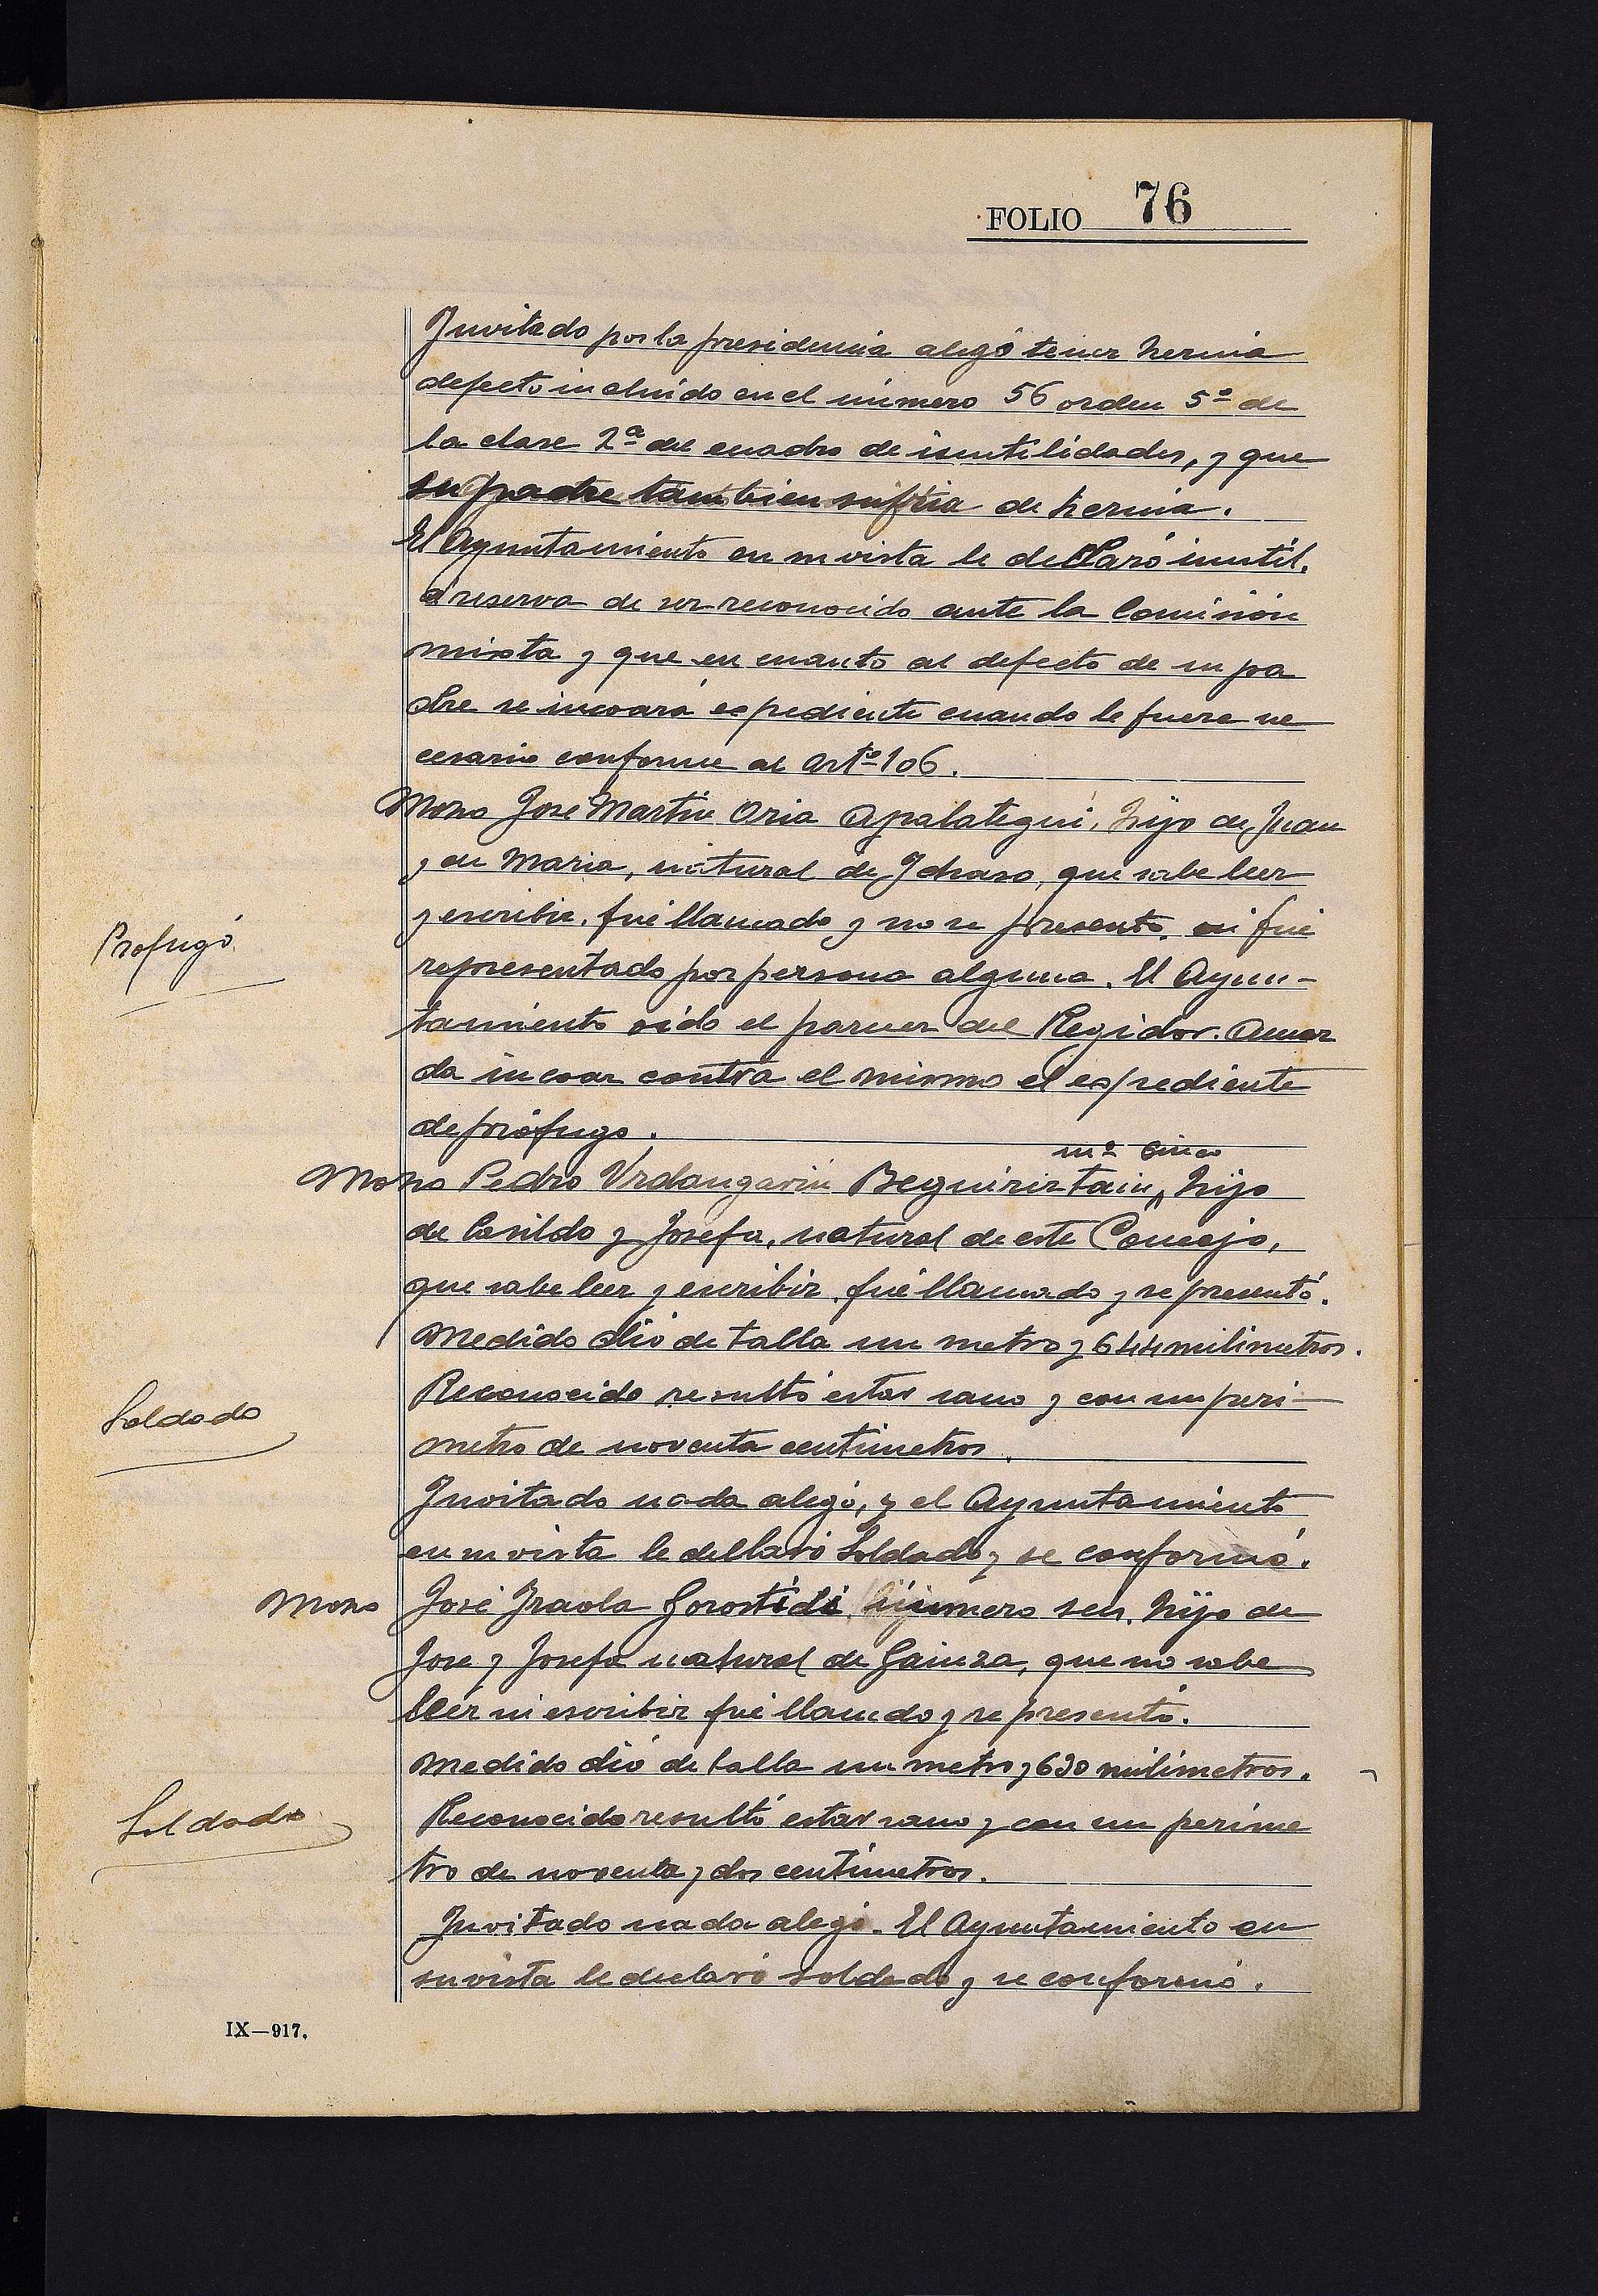 FOLIO 76
Invitado por la presidencia alegó tener hernia
defecto incluido en el número 56 orden 5º de
la clase 2ª del cuadro de inutilidades, y que
su padre tambien sufria de hernia.
El Ayuntamiento en su vista le decllaró inutil,
á reserva de ser reconocido ante la Comisión
mixta y que en cuanto al defecto de su pa
dre se incoará espediente cuando le fuera ne
cesario conforme al Artº 106.
Mozo José Martin Oria Apalategui, hijo de Juan
y de Maria, natural de Idiazo, que sabe leer
y escribir, fué llamado y no se presentó, ni fué
Profugó
representado por persona alguna. El Ayun-
tamiento oido el parecer del Regidor. Acuer
da incoar contra el mismo el espediente
de prófugo.
nº Cinco
Mozo Pedro Urdangarin Beguiristain, hijo
de Casildo y Josefa, natural de este Concejo,
que sabe leer y escribir, fué llamado y se presentó.
Medido dió de talla un metro y 644 milimetros.
Reconocido resultó estar sano y con un peri-
Soldado
metro de noventa centimetros.
Invitado nada alegó, y el Ayuntamiento
en su vista le decllaró Soldado y se conformó.
Mozo José Iraola Gorostidi, número seis, hijo de
Jose y Josefa natural de Gainza, que no sabe
leer ni escribir fué llamado y se presentó.
Medido dió de talla un metro y 630 milimetros.
Soldado
Reconocido resultó estar sano y con un perime
tro de noventa y dos centimetros.
Invitado nada alegó. El Ayuntamiento en
su vista le declaró soldado y se conformó.
IX—917.